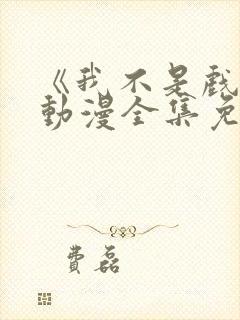 《我不是戲
動漫全集免
費磊